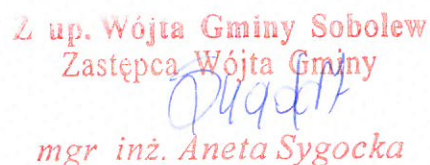 Z up. Wójta Gminy Sobolew
Zastępca Wójta Gminy
mgr inż. Aneta Sygocka